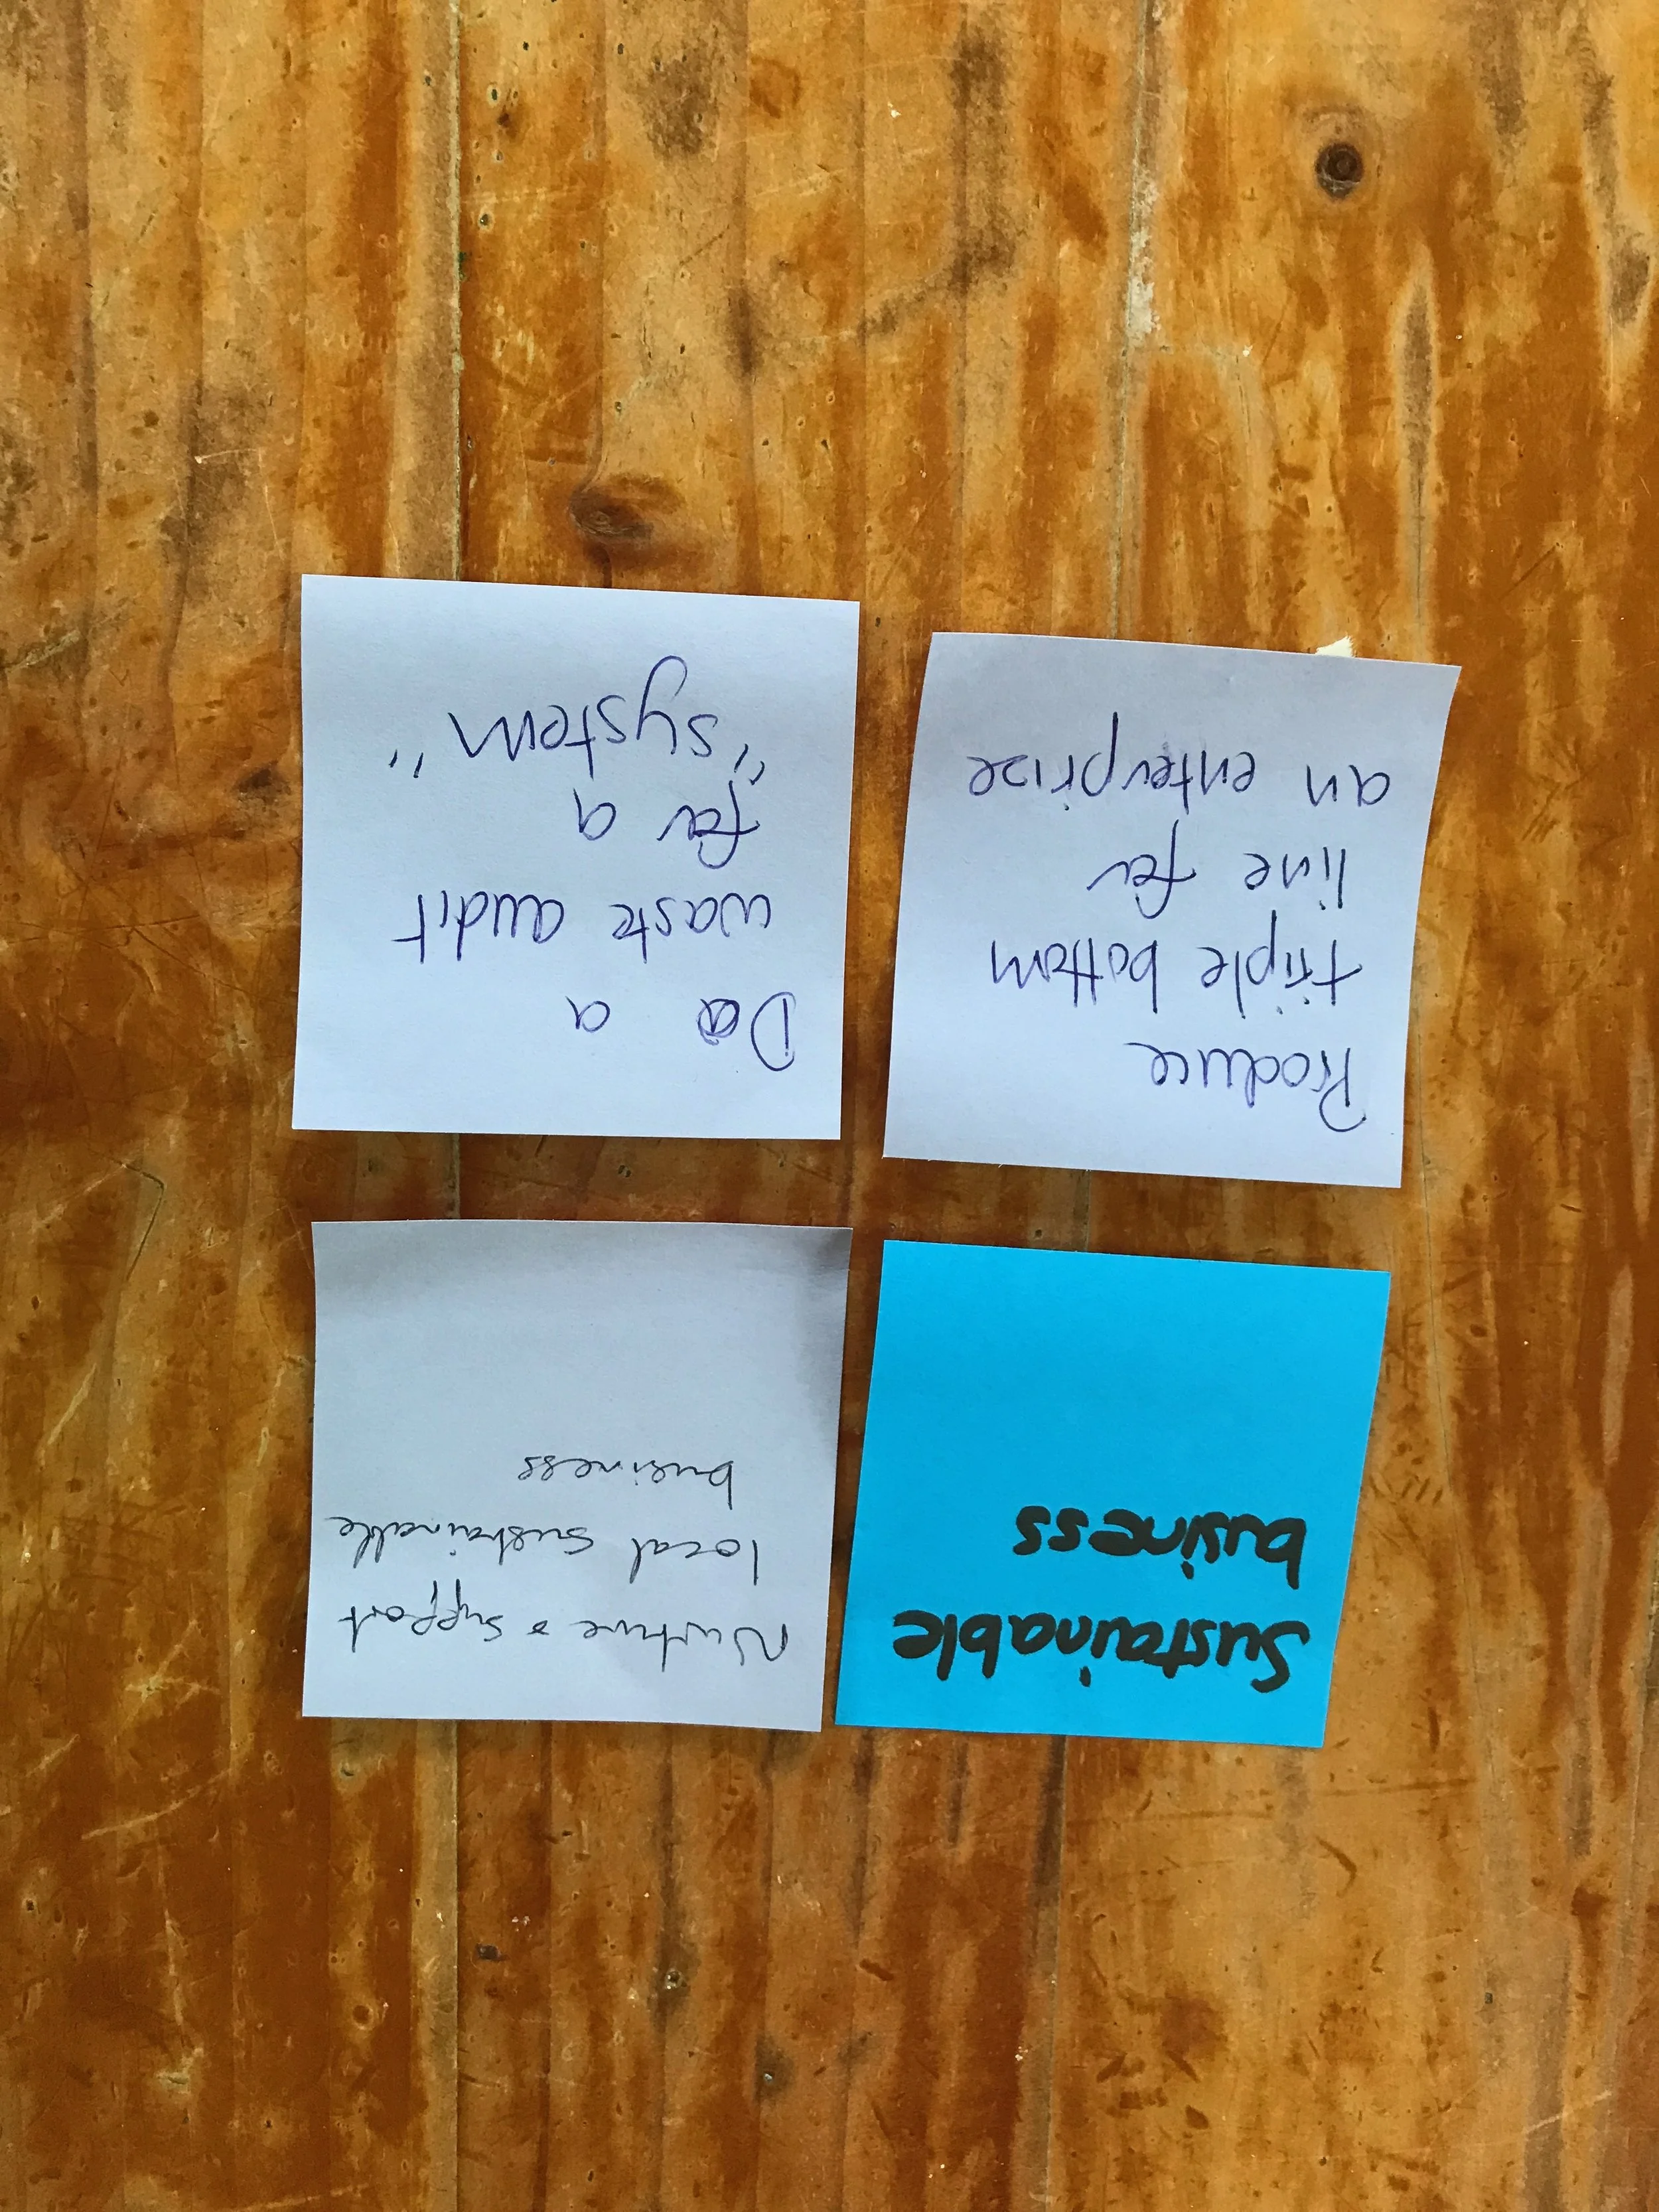 Sustainable
business
Nurture & support
local sustainable
business
Produce
triple bottom
line for
an enterprize
Do a
waste audit
for a
"system"